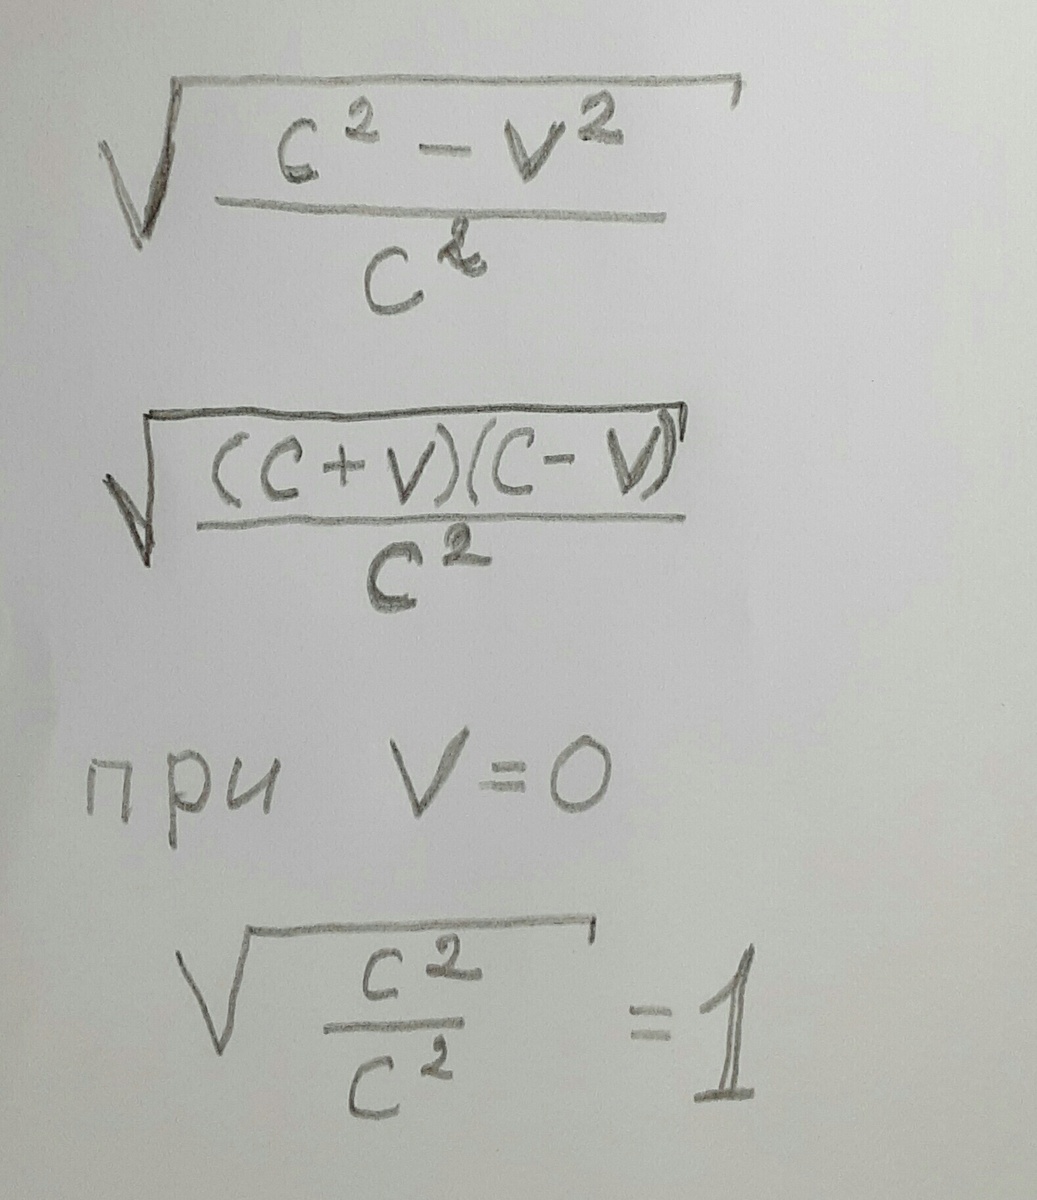 √((C² - V²)/C²)
√((C + V)(C - V)/C²)
при V = 0
√(C²/C²) = 1